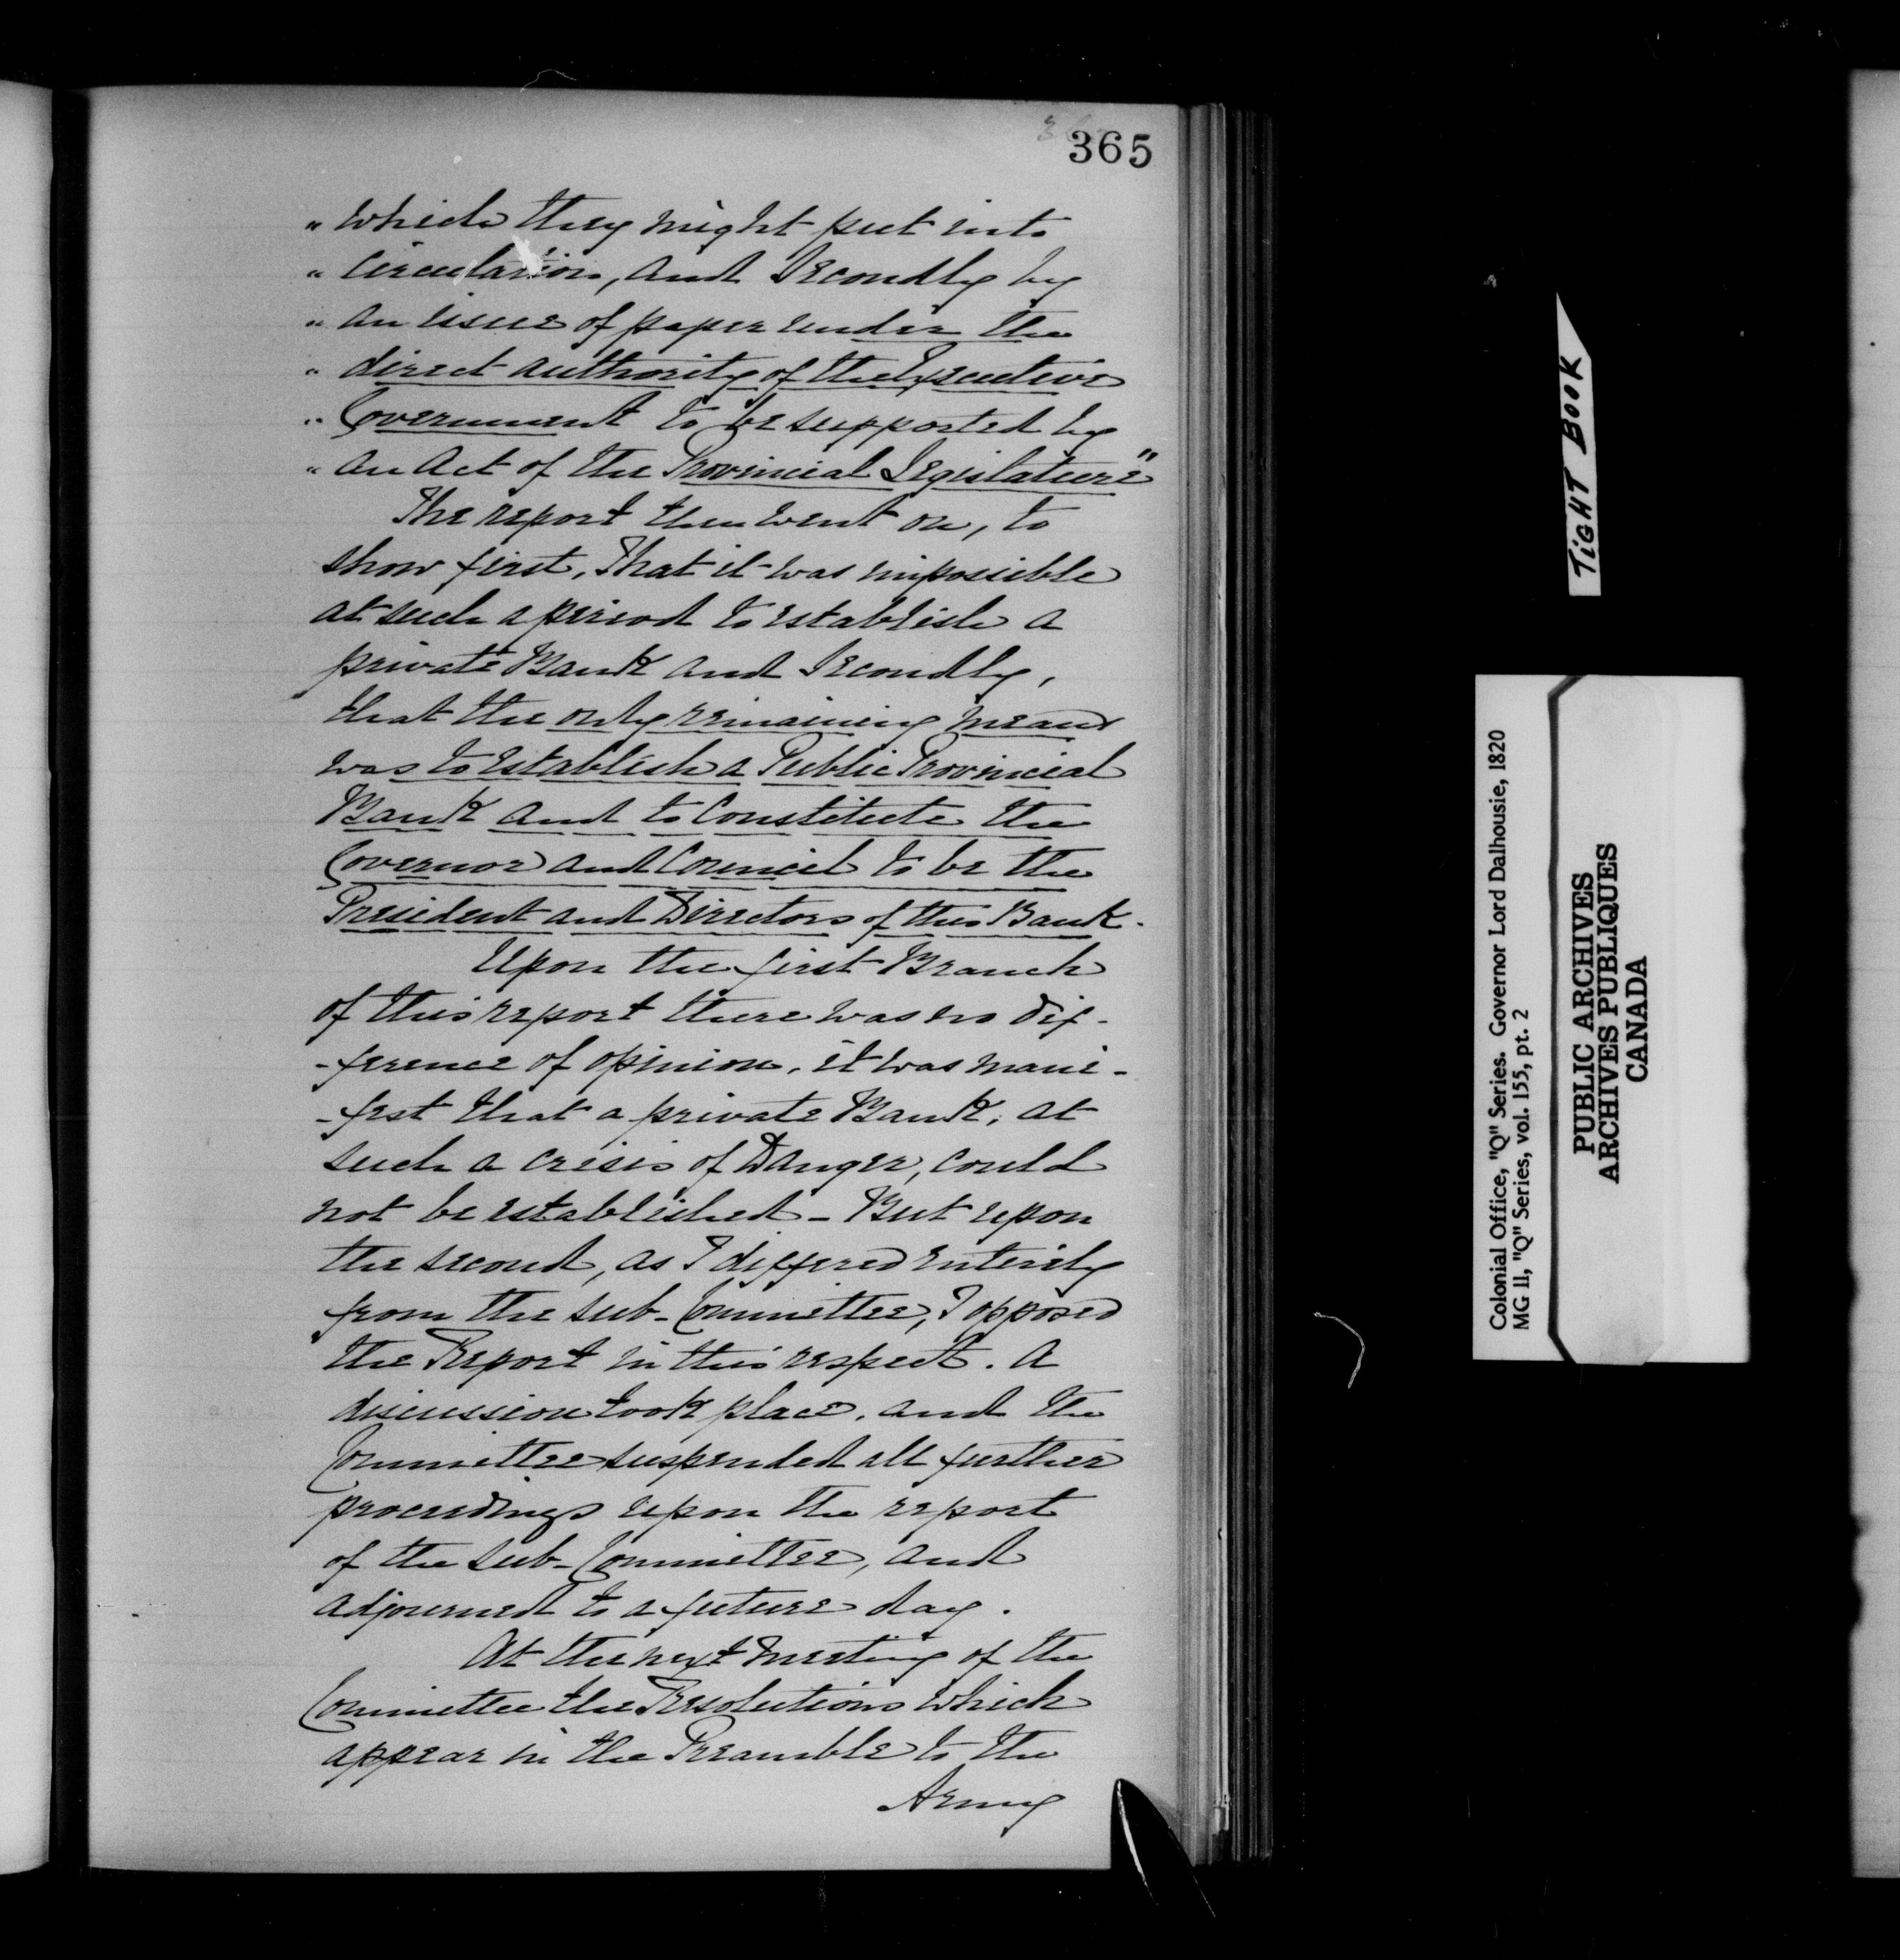 365
" which they might put into
" circulation, and Secondly by
" an issue of paper under the
" direct authority of the Executive
" Government to be supported by
" an Act of the Provincial Legislature"
The report then went on, to
show first, That it was impossible
at such a period to establish a
private Bank and Secondly,
that the only remaining means
was to establish a Public Provincial
Bank and to Constitute the
Governor and Council to be the
President and Directors of this Bank.
Upon the first Branch
of this report there was no dif-
-ference of opinion, it was mani-
-fest that a private Bank, at
such a crisis of Danger, could
not be established - But upon
the second, as I differed entirely
from the sub-Committee, I opposed
the Report in this respect. A
discussion took place, and the
Committee suspended all further
proceedings upon the report
of the sub-Committee, and
adjourned to a future day.
At the next meeting of the
Committee the Resolutions which
appear in the Preamble to the
Army
TIGHT BOOK
Colonial Office, "Q" Series. Governor Lord Dalhousie, 1820
MG 11, "Q" Series, vol. 155, pt. 2
PUBLIC ARCHIVES
ARCHIVES PUBLIQUES
CANADA